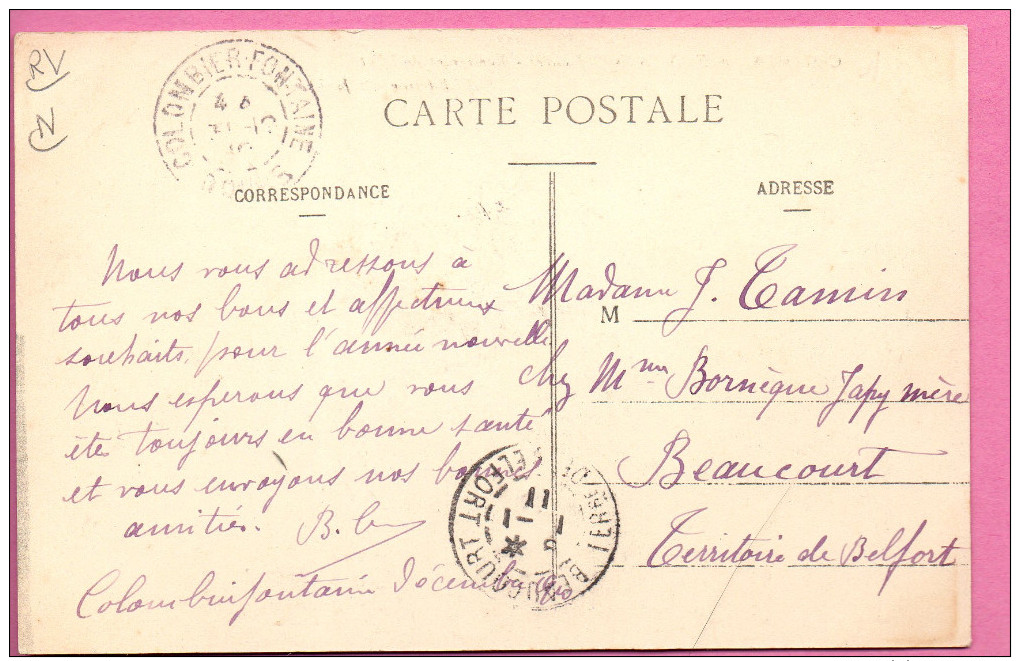 RV
N
COLOMBIER-FONTAINE
DOUBS
CARTE POSTALE
CORRESPONDANCE
ADRESSE
Nous vous adressons à
tous nos bons et affectueux
souhaits, pour l'année nouvelle
Nous esperons que vous
êtes toujours en bonne santé
et vous envoyons nos bonnes
amitiés.
Colombierfontaine Décembre
Madame J. Tamin
M
chez Mme Bornèque Japy mère
Beaucourt
Territoire de Belfort
BEAUCOURT
TERRRE DE BELFORT
11